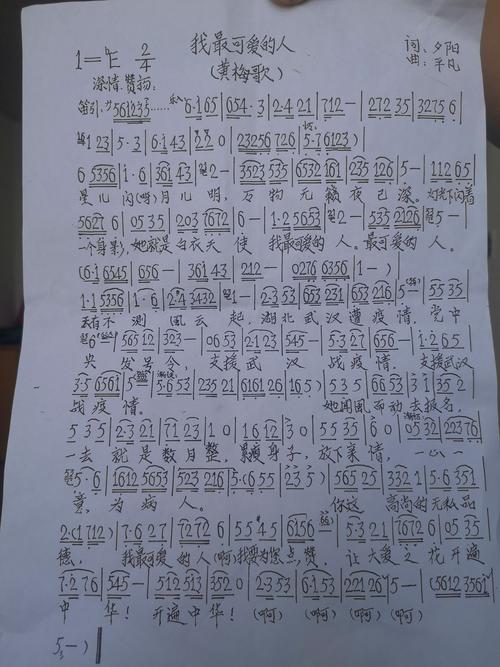 我最可爱的人
1=♮E 2/4 (黄梅歌) 词:夕阳
深情.赞扬: 曲:平凡
6·1 65 | 654·3 | 2·4 21 | 712- | 272 35 | 3275 6 |
123 | 5·3 | 6·1 43 | 2 2 0 | 23256 726 | 5·76123) |
6 5356 | i·6 | 361 43 | 2- | 3523 535 | 6532 161 | 235 126 | 5- | 112 65 |
星儿闪(呀)月儿明,万物无籁夜已深。灯光下闪着
5627 6 | 05 35 | 203 7672 | 6- | 1·2 5653 | 2- | 535 2126 | 5- |
一个身影,她就是白衣天使 我最可爱的人。最可爱的人。
(6·1 6545 | 656- | 361 43 | 212- | 0276 6356 | 1-)
1·1 5356 | 1·6 | 2·4 3432 | 1- | 2·3 53 | 653 231 | 653 216 | 5 | 55 35 |
天有不测風云起,湖北武汉遭疫情,党中
565 12 | 323- | 06 53 | 2·1 23 | 545- | 5·3 27 | 656- | i·2 65 |
央发号令,支援武汉 战疫情,支援武汉
3·5 6561 | 5 | 5·6 53 | 235 21 | 6161 26 | 1 6 5) | 53 5 | 66 53 | 3 1 | 35 2 |
战疫情。 她闻風而动去报名,
5 35 | 2·3 21 | 71 23 | 1 0 | 16 12 | 3 0 | 55 35 | 6 0 | 05 32 | 223 76 |
一去就是数月整,累瘦身子,放下亲情,一心一
5·6 | 1612 5653 | 523 216 | 5·(6 55 | 2 3 5) | 565 25 | 332 1 | 5·6 351 |
意,为病人。 你这高尚的无私品
2·(1 712) | 7·6 27 | 7272 6 | 55 #45 | 6156 | 5·3 21 | 7672 6 | 05 35 |
德,我最可爱的人(啊)我要为您点,赞,让大爱之花开遍
7·2 76 | 545- | 512 513 | 352 0 | 2·3 53 | 6·1 53 | 221 26 | 5- | (5612 3561 |
中华!开遍中华!(啊)(啊)(啊)(啊)
5 -)